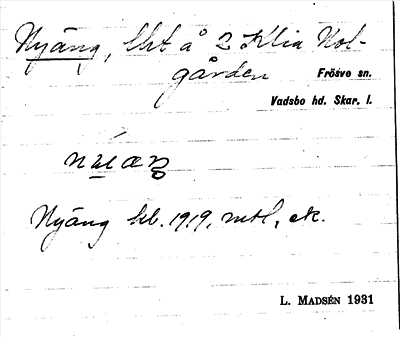 Nyäng, lht å 2 Klia Nol-
gården Frösve sn.
Vadsbo hd. Skar. l.
Nyäng hb. 1919, mtl, ek.
L. MADSÉN 1931